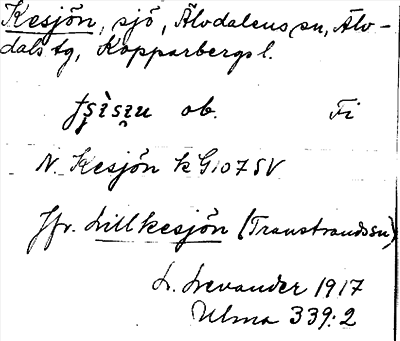 Kesjön, sjö, Älvdalens sn, Älv-
dals tg, Kopparbergs l.
ob. Fi
N. Kesjön k G107SV
Jfr. Lillkesjön (Transtrands sn)
L. Levander 1917
Ulma 339:2